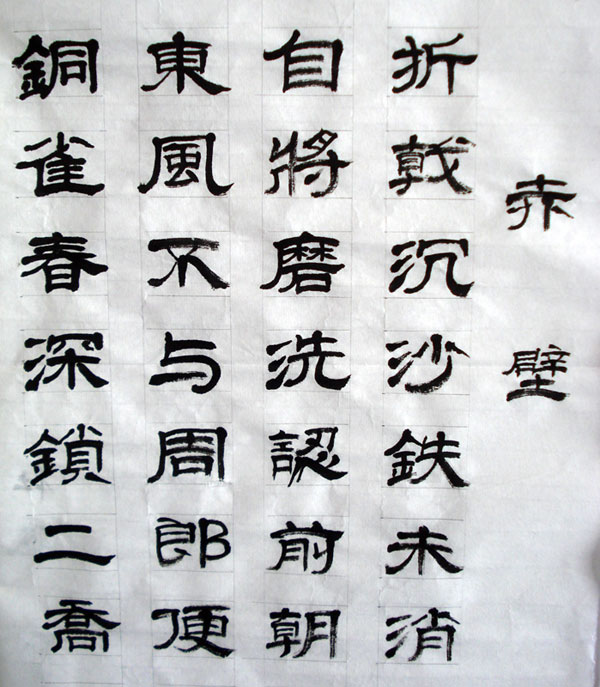 赤壁
折戟沉沙鉄未消
自將磨洗認前朝
東風不与周郎便
銅雀春深鎖二喬